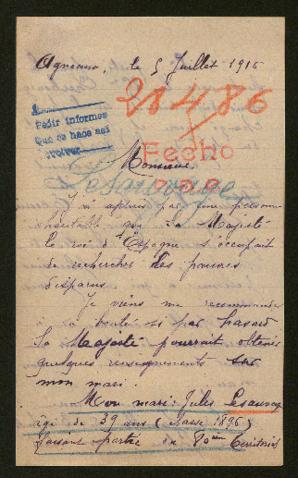 le 5 Juillet 1915
28486
Pedir informes
Que se hace asi
Monsieur
Fecho
J'ai appris par une personne
charitable que Sa Majesté
le roi d'Espagne s'occupait
de rechercher les pauvres
disparus.
Je viens me recommander
à sa bonté si par hasard
Sa Majesté pourrait obtenir
quelques renseignements sur
mon mari.
Mon mari: Jules Lesauvage
âgé de 39 ans (classe 1896)
faisant partie du 80ème Territorial